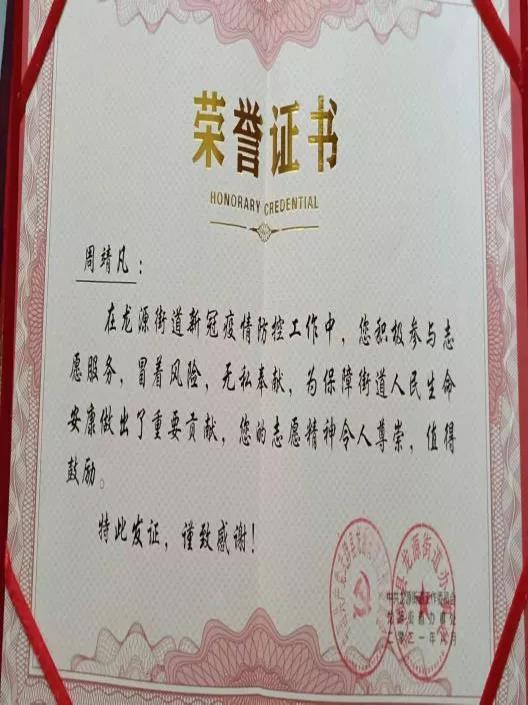 荣誉证书
HONORARY CREDENTIAL
周靖凡：
在龙源街道新冠疫情防控工作中，您积极参与志
愿服务，冒着风险，无私奉献，为保障街道人民生命
安康做出了重要贡献，您的志愿精神令人尊崇，值得
鼓励。
特此发证，谨致感谢！
中共龙源街道工作委员会
龙源街道办事处
二〇二一年 月